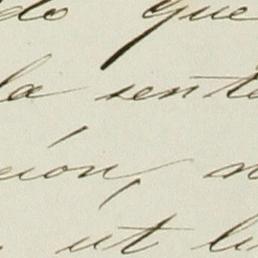 do que
la sente
ción, n
ut li